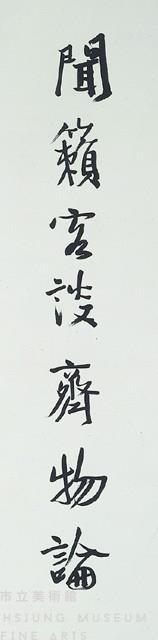 聞籟客談齊物論
市立美術館
HSIUNG MUSEUM
FINE ARTS